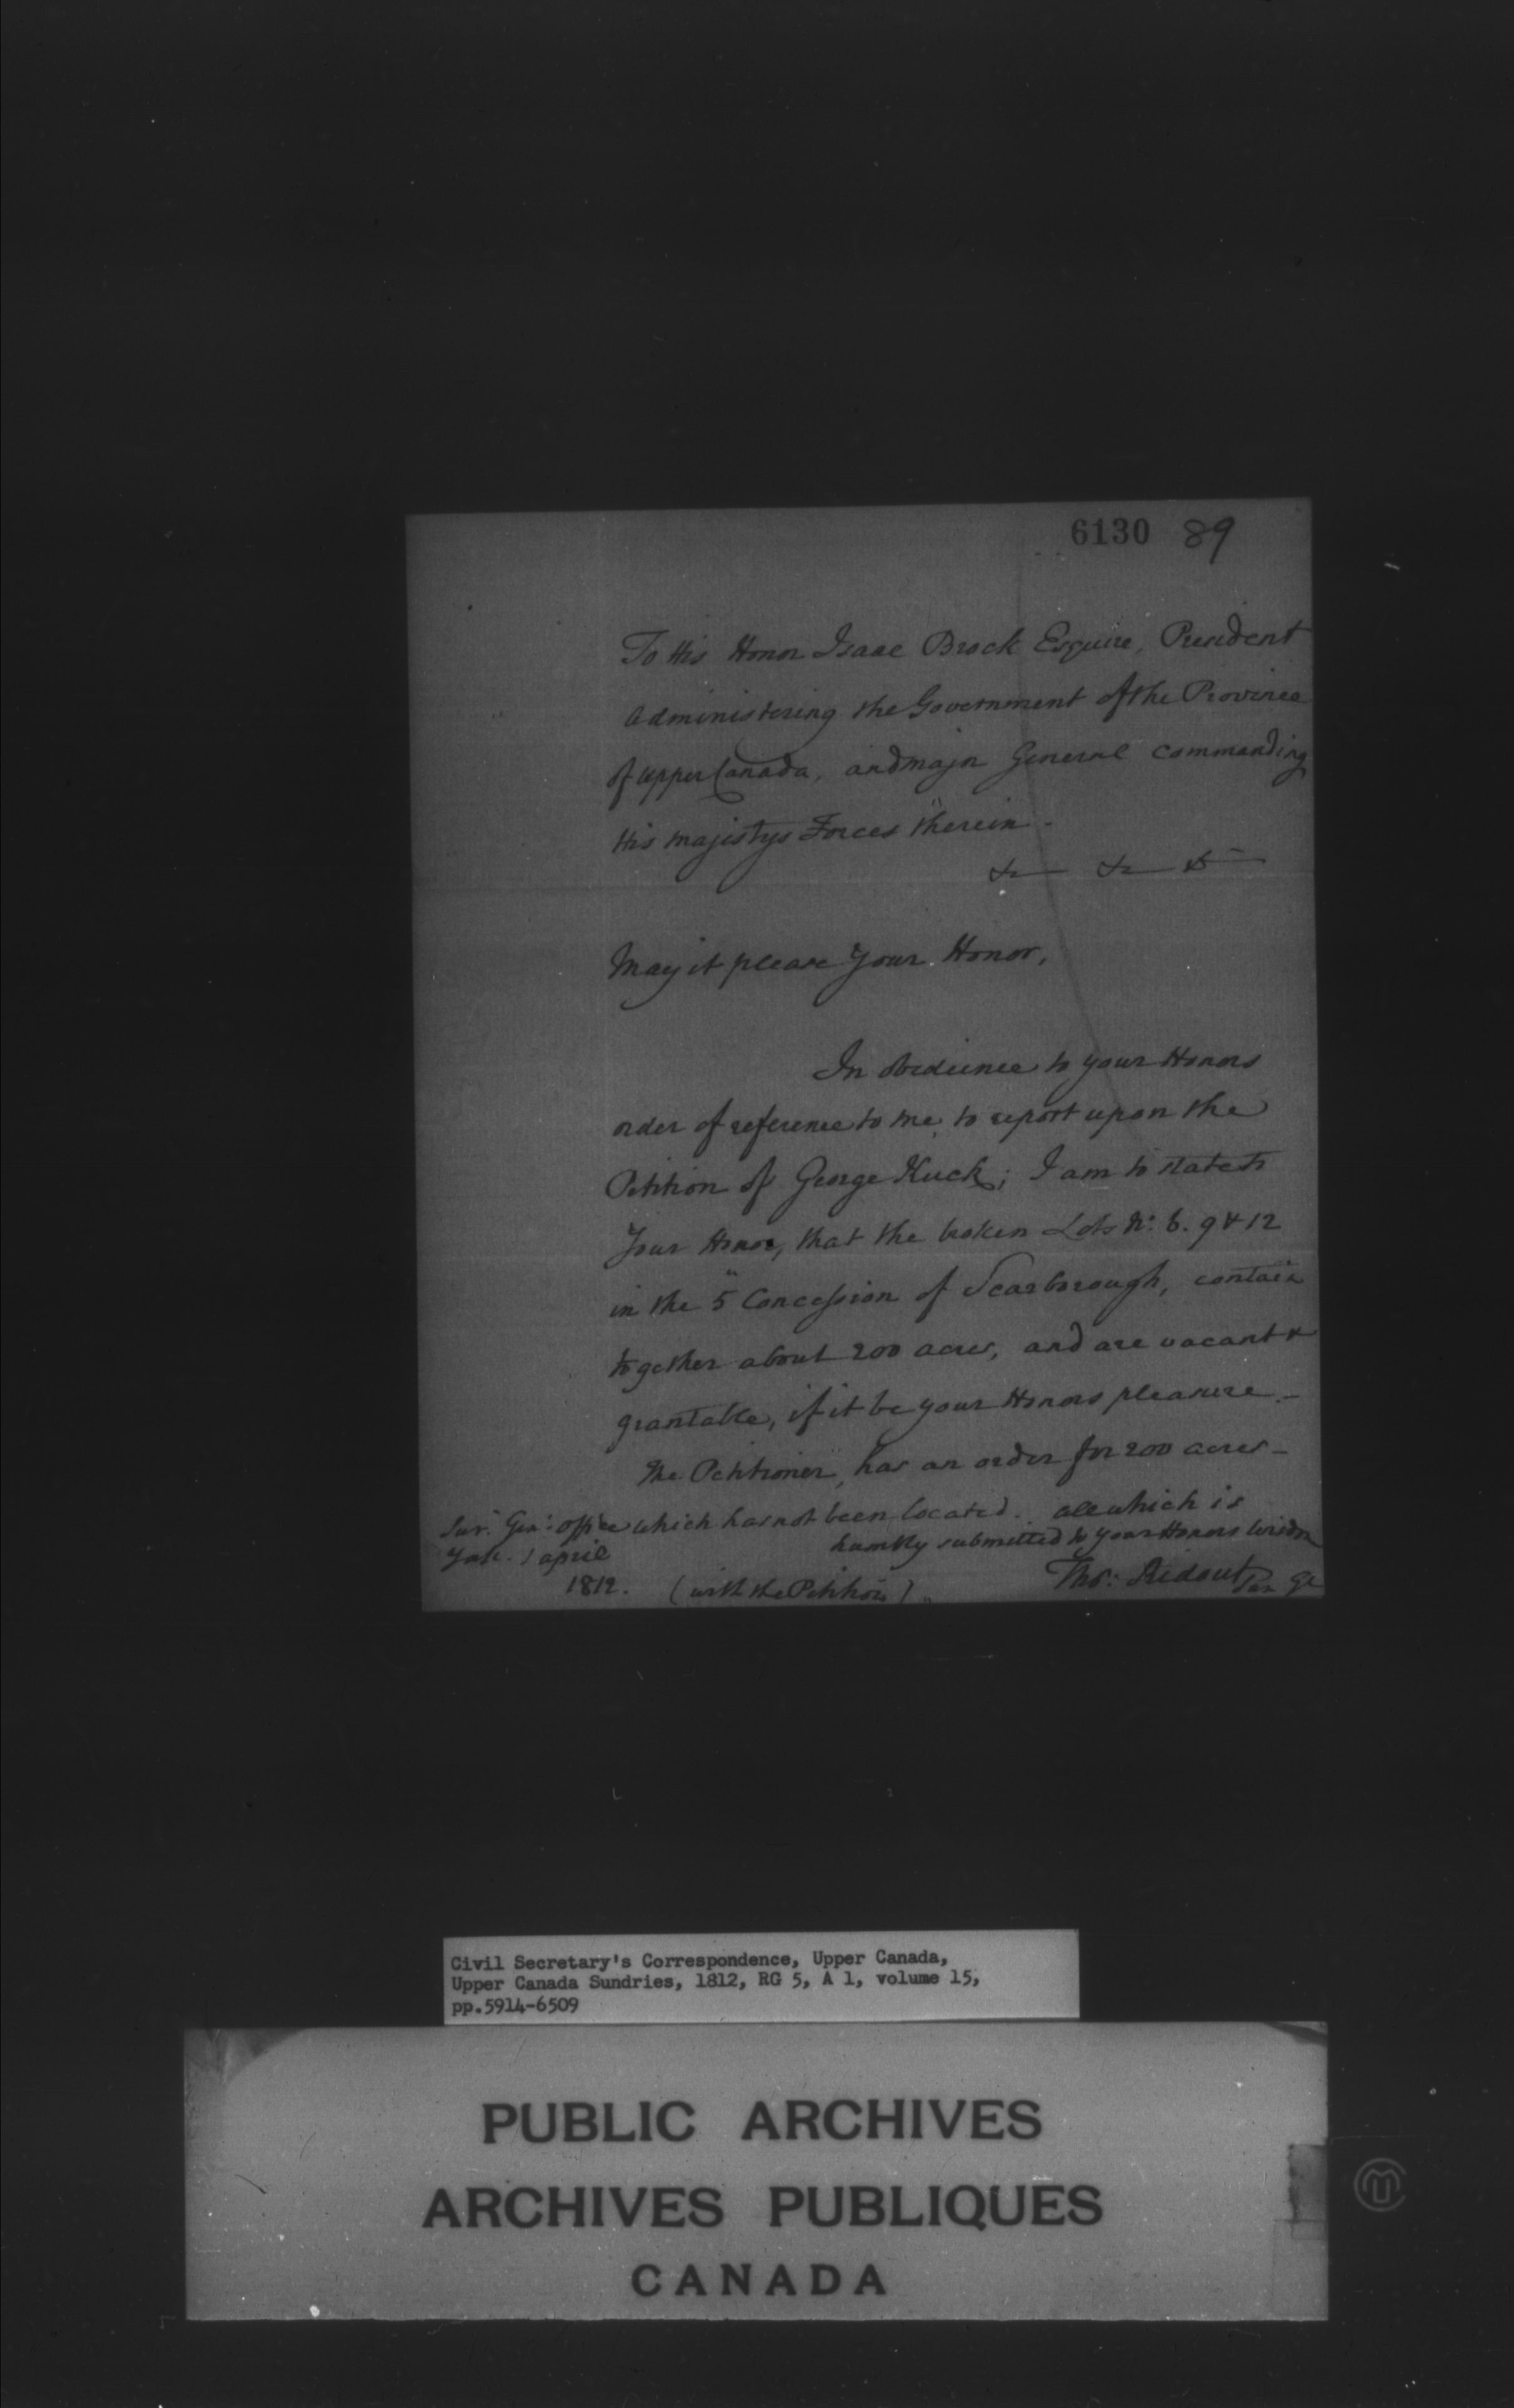 6130 89
To His Honor Isaac Brock Esquire, President
administering the Government of the Province
of Upper Canada, and major General commanding
His majestys Forces therein -
&c &c &c
May it please your Honor,
In obedience to your Honors
order of reference to me to report upon the
Petition of George Kuck; I am to state to
Your Honor, that the broken Lots No: 6. 9 & 12
in the 5 Concession of Scarborough, contain
together about 200 acres, and are vacant &
grantable, if it be your Honors pleasure -
The Petitioner, has an order for 200 acres -
which has not been located. all which is
humbly submitted to your Honors Wisdom
Sur: Gen: office
York. 1 april
1812.
(with the Petition)
Thos: Ridout Sur Gl
Civil Secretary's Correspondence, Upper Canada,
Upper Canada Sundries, 1812, RG 5, A 1, volume 15,
pp.5914-6509
PUBLIC ARCHIVES
ARCHIVES PUBLIQUES
CANADA